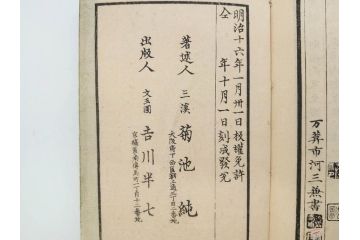 明治十六年一月卅一日板權免許
仝　年十月一日刻成發兌
著述人　三溪　菊池純
大阪府下西區靱上通二丁目二番地
出版人　文玉圃　吉川半七
京橋區南傳馬町一丁目十二番地
万笈市河三兼書